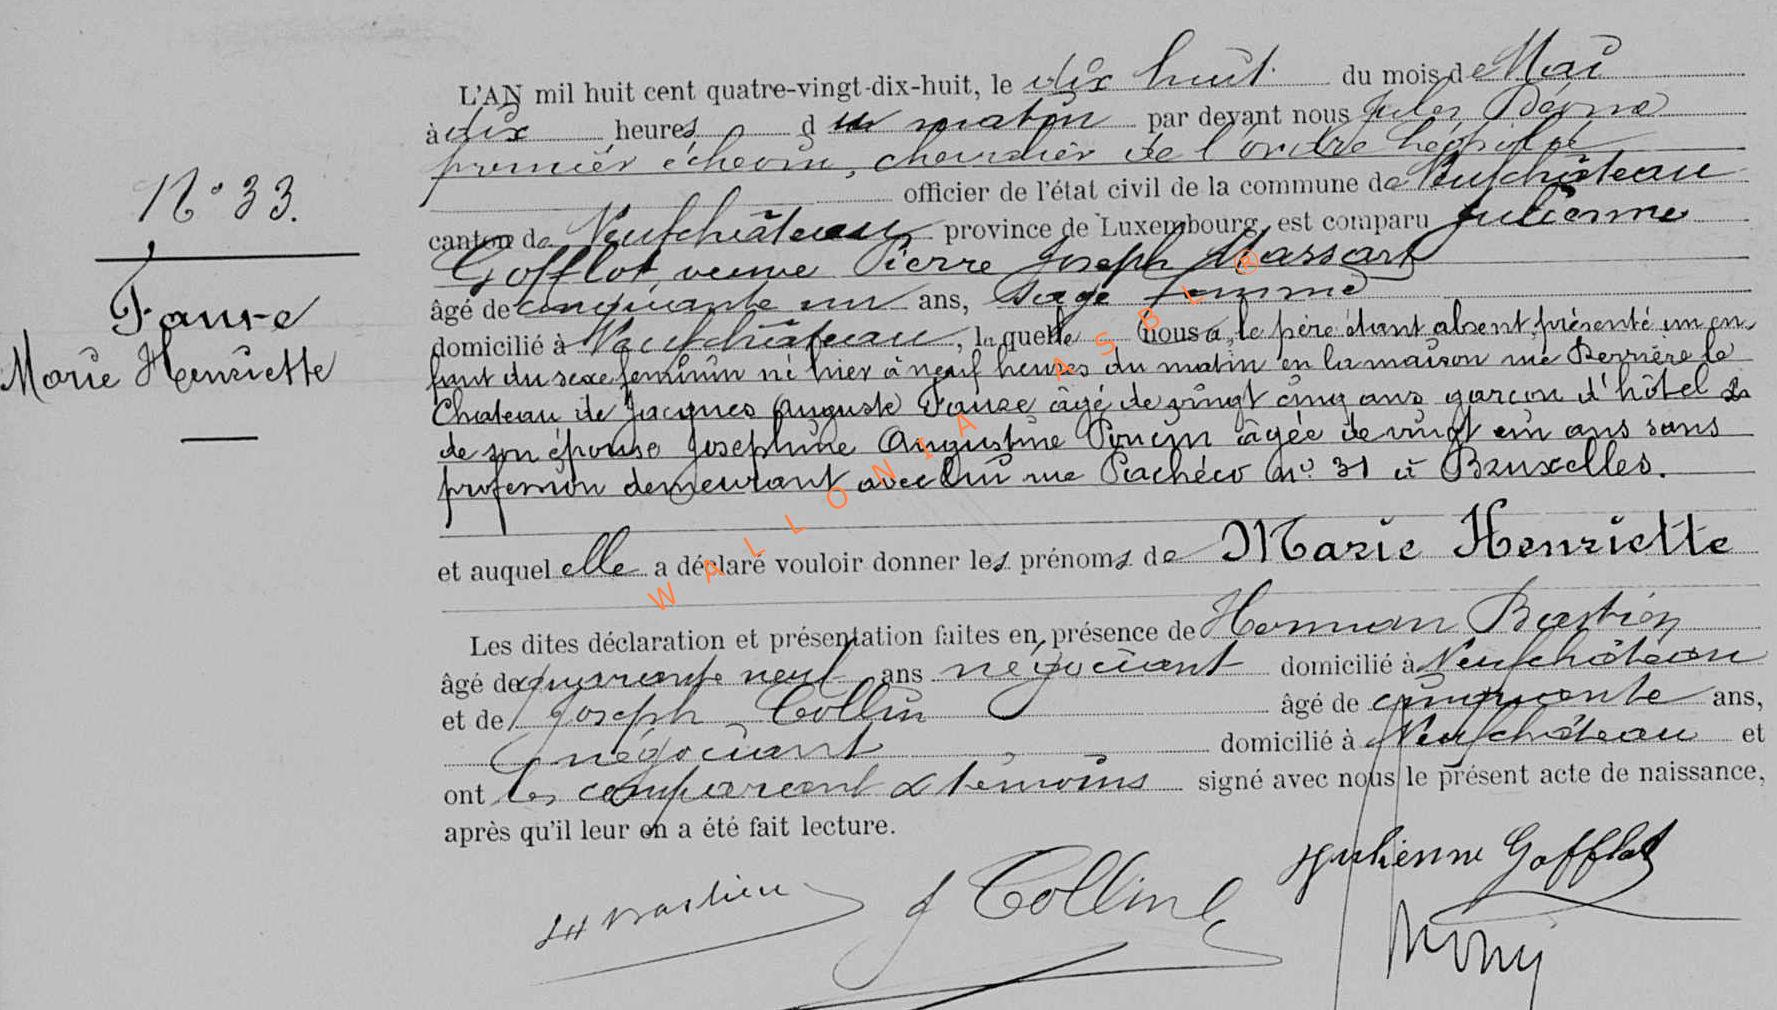 N° 33.
Faure
Marie Henriette
L'AN mil huit cent quatre-vingt-dix-huit, le dix huit du mois de Mai
à dix heures du matin par devant nous Jules
premier échevin, chevalier de l'ordre Léopold
officier de l'état civil de la commune de Neufchâteau
canton de Neufchâteau province de Luxembourg, est comparu Julienne
Gofflot, veuve Pierre Joseph Massart
âgé de cinquante un ans, sage femme
domicilié à Neufchâteau, laquelle nous a, le père étant absent présenté un en-
fant du sexe feminin né hier à neuf heures du matin en la maison rue Derrière le
Chateau de Jacques Auguste Faure âgé de vingt cinq ans garçon d'hôtel &
de son épouse Josephine Augustine Poncin âgée de vingt ein ans sans
profession demeurant avec lui rue Pachéco n° 31 à Bruxelles.
et auquel elle a déclaré vouloir donner les prénoms de Marie Henriette
Les dites déclaration et présentation faites en présence de Herman Bastien
âgé de quarante neuf ans négociant domicilié à Neufchâteau
et de Joseph Collin âgé de cinquante ans,
négociant domicilié à Neufchâteau et
ont les comparant & témoins signé avec nous le présent acte de naissance,
après qu'il leur en a été fait lecture.
Julienne Gofflot
H Bastien J Collin
WALLONIA ASBL ®